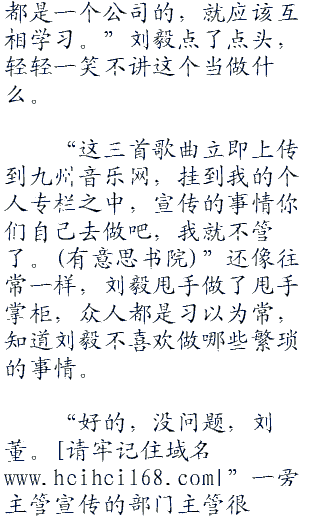 都是一个公司的，就应该互
相学习。”刘毅点了点头，
轻轻一笑不讲这个当做什
么。
“这三首歌曲立即上传
到九州音乐网，挂到我的个
人专栏之中，宣传的事情你
们自己去做吧，我就不管
了。(有意思书院)”还像往
常一样，刘毅甩手做了甩手
掌柜，众人都是习以为常，
知道刘毅不喜欢做哪些繁琐
的事情。
“好的，没问题，刘
董。[请牢记住域名
www.hcihci168.com|”一旁
主管宣传的部门主管很